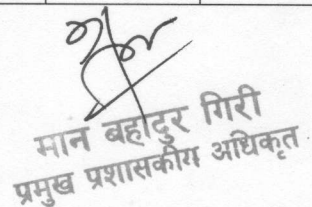 मान बहादुर गिरी
प्रमुख प्रशासकीय अधिकृत